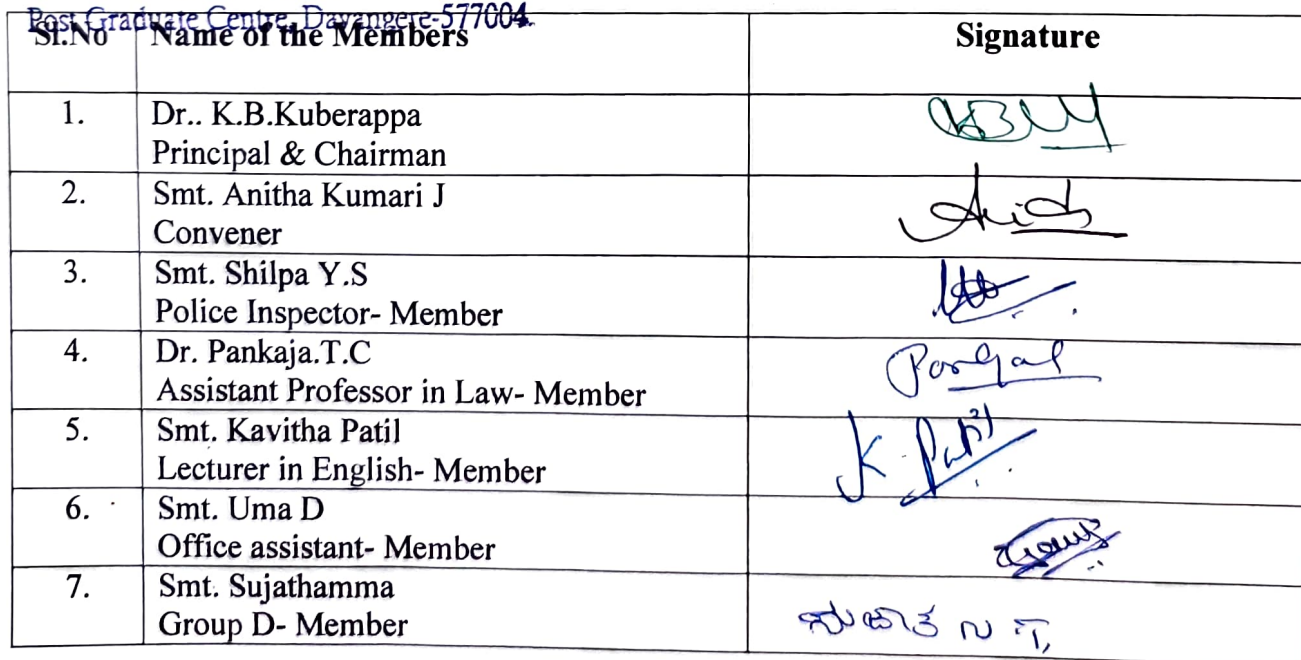 Post Graduate Centre, Davangere-577004.
Sl.No Name of the Members Signature
1. Dr.. K.B.Kuberappa
Principal & Chairman
2. Smt. Anitha Kumari J
Convener
3. Smt. Shilpa Y.S
Police Inspector- Member
4. Dr. Pankaja.T.C
Assistant Professor in Law- Member
5. Smt. Kavitha Patil
Lecturer in English- Member
K. Patil
6. Smt. Uma D
Office assistant- Member
7. Smt. Sujathamma
Group D- Member